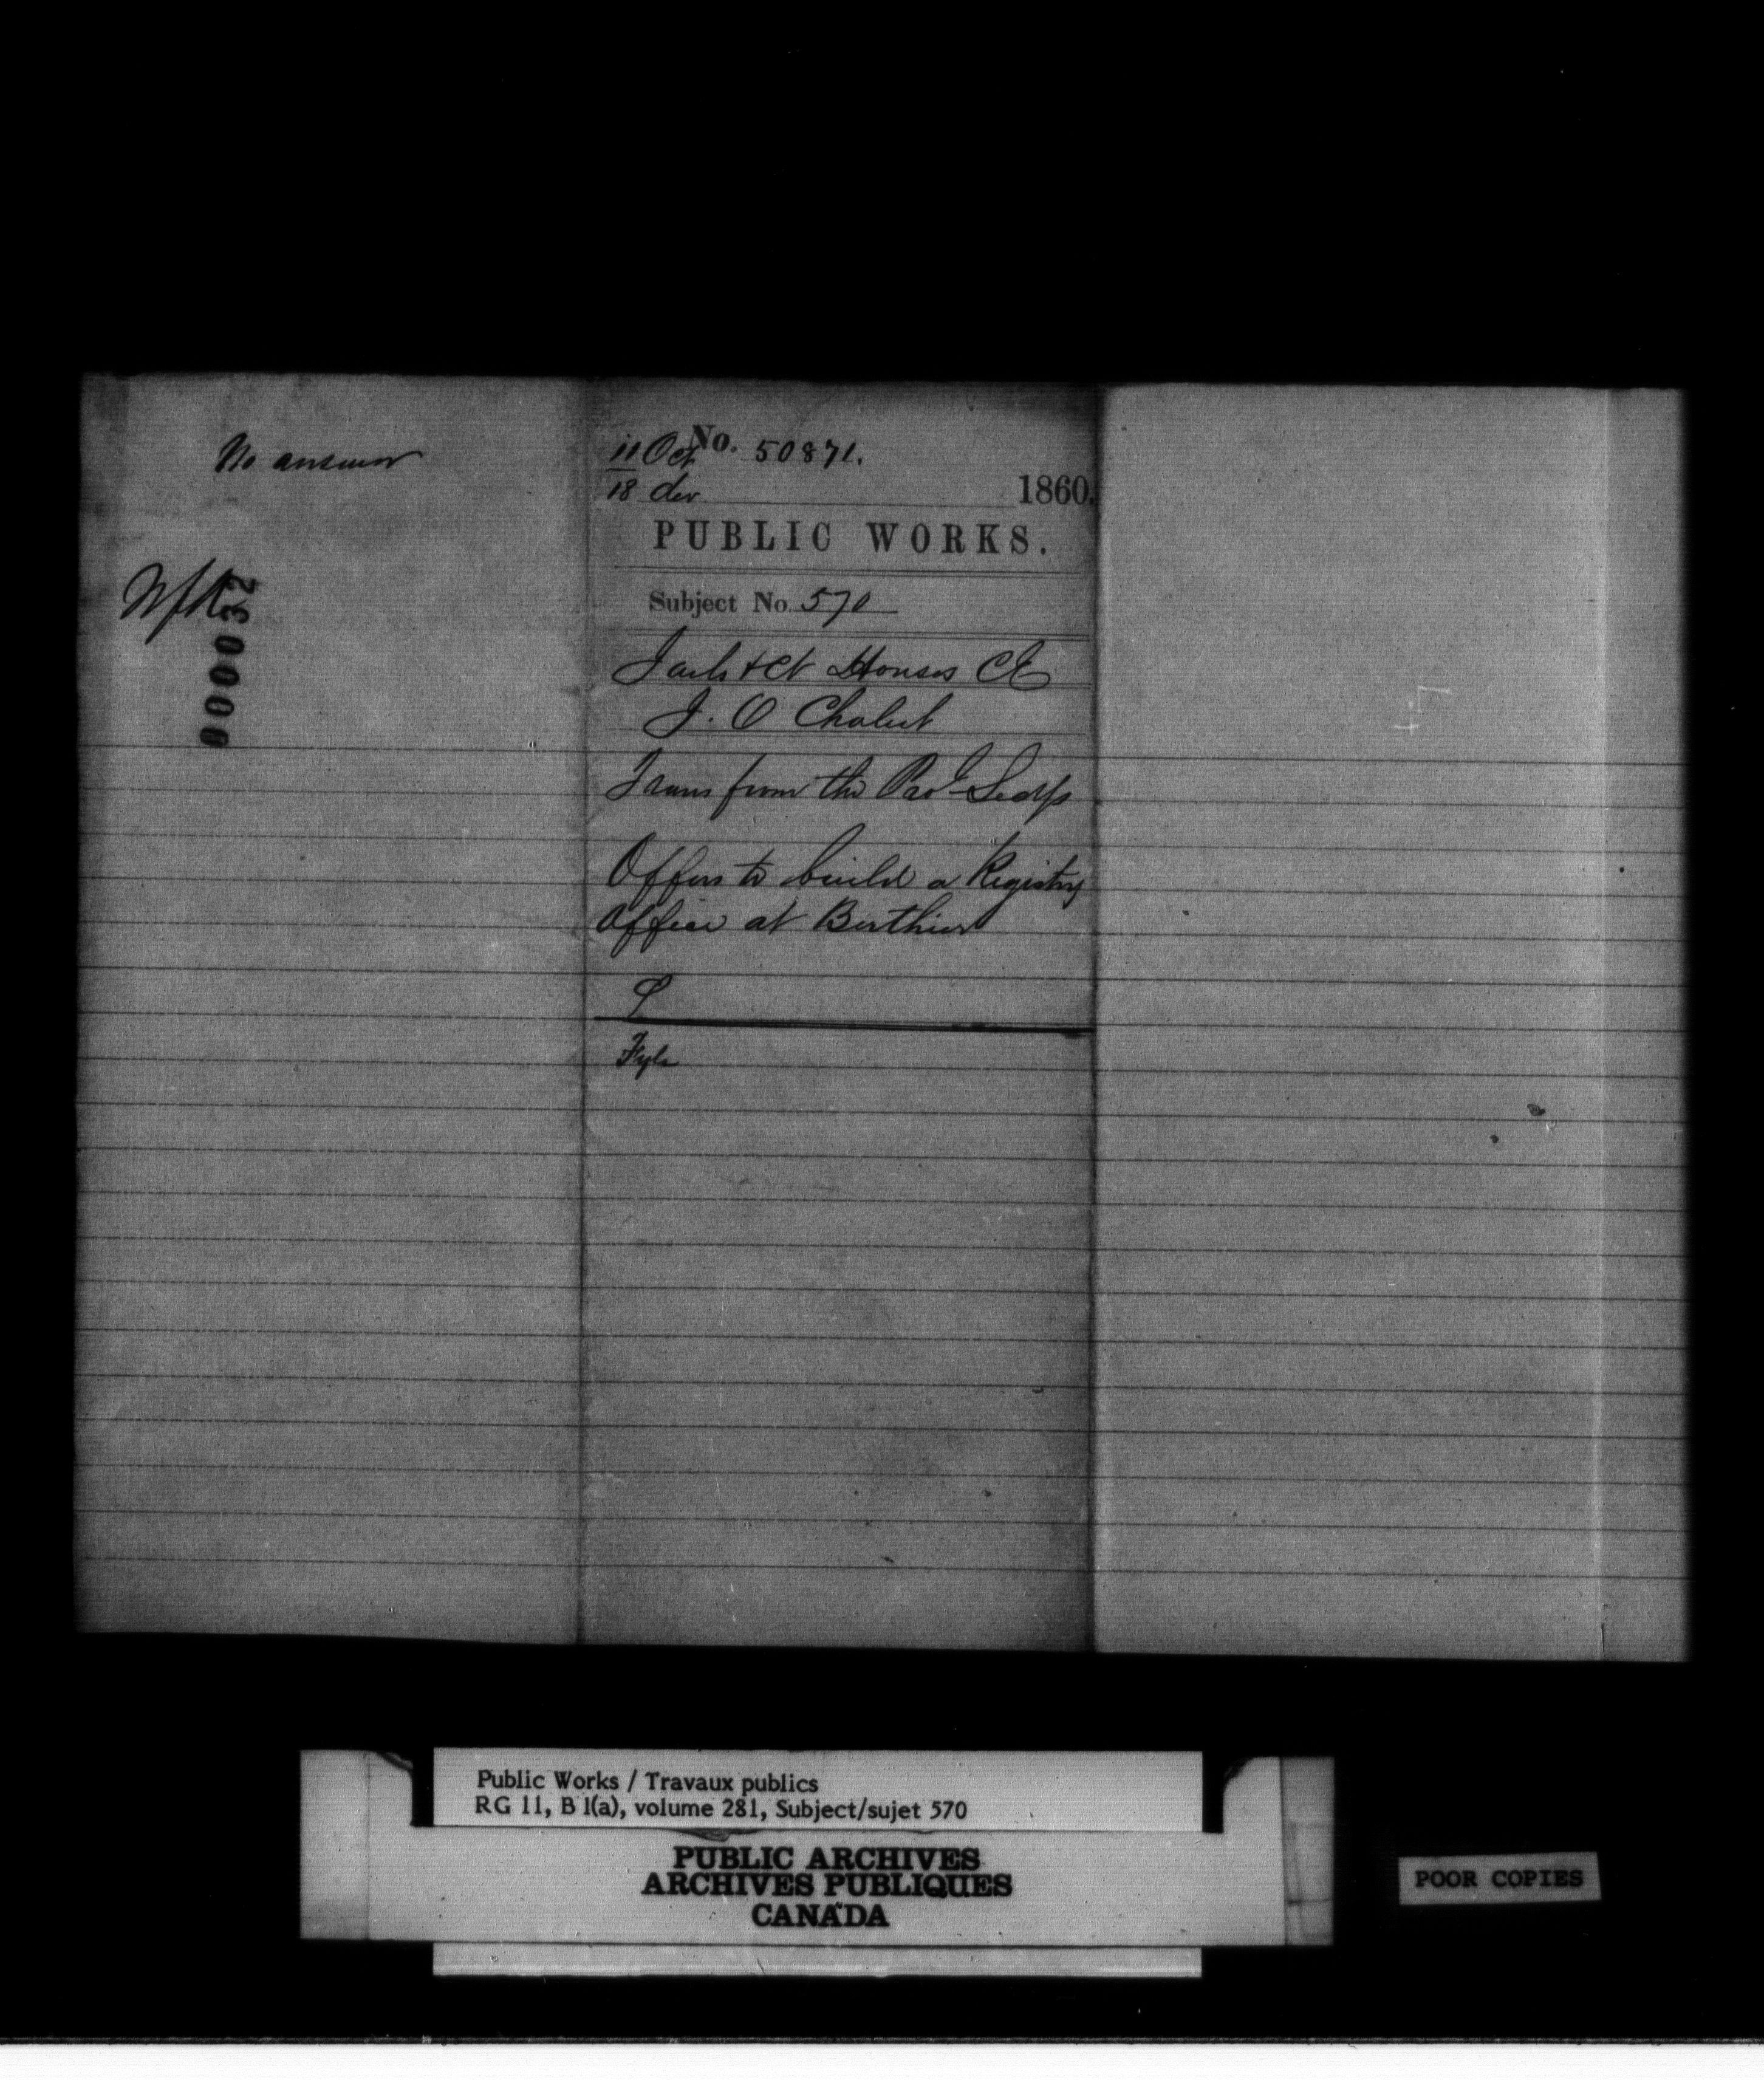 No answer
000032
No. 50871.
11 Oct
18 do 1860.
PUBLIC WORKS.
Subject No. 570
Jails & Ct Houses CE
J. O Chalut
Trans from the Prol Secys
Offers to build a Registry
Office at Berthier
Fyle
Public Works / Travaux publics
RG 11, B 1(a), volume 281, Subject/sujet 570
PUBLIC ARCHIVES
ARCHIVES PUBLIQUES
CANADA
POOR COPIES